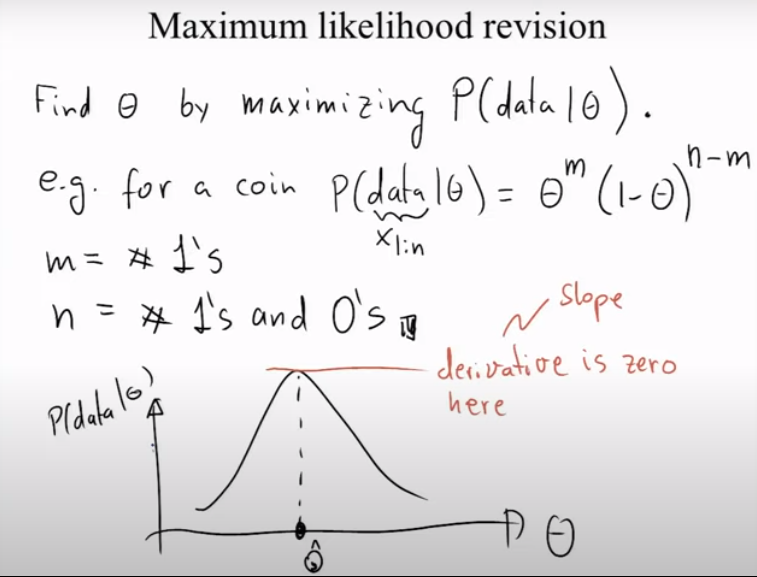 Maximum likelihood revision
Find θ by maximizing P(data|θ).
e.g. for a coin P(data|θ) = θ^m (1-θ)^{n-m}
x_{1:n}
m = # 1's
n = # 1's and 0's
slope
derivative is zero
here
P(data|θ)
θ̂
θ